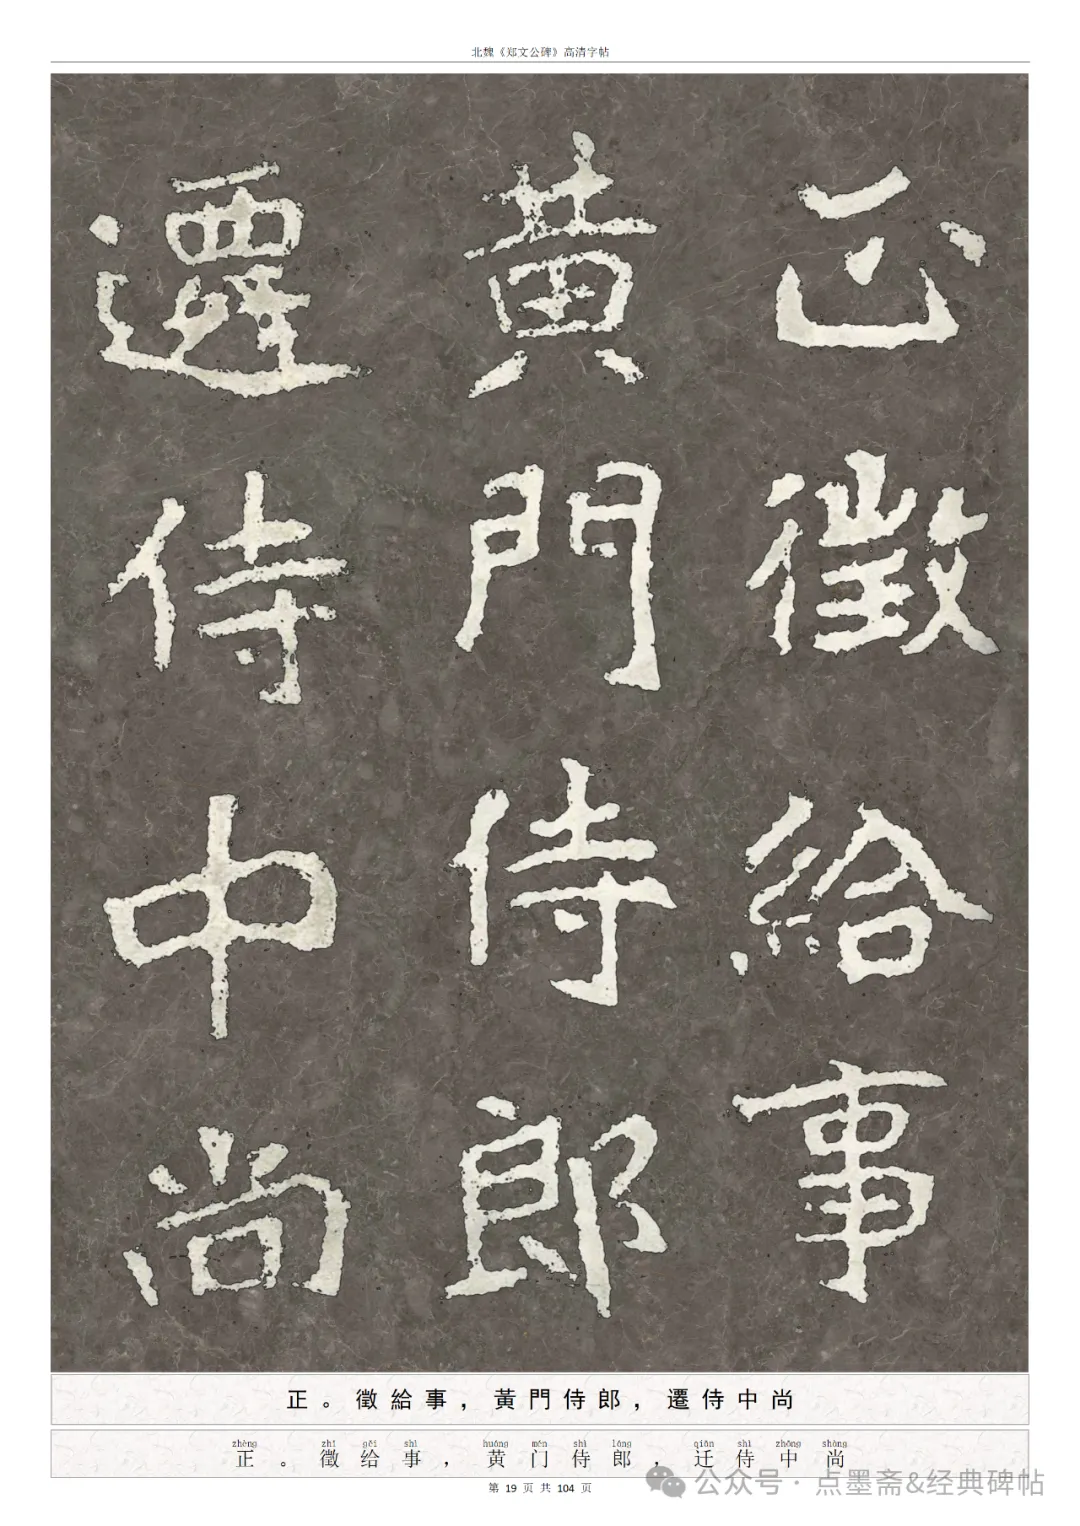 北魏《郑文公碑》高清字帖
正徵給事
黃門侍郎
遷侍中尚
正。徵給事，黃門侍郎，遷侍中尚
zhèng zhǐ gěi shì huáng mén shì láng qiān shì zhōng shàng
正。徵给事，黄门侍郎，迁侍中尚
第 19 页 共 104 页
公众号·点墨斋&经典碑帖